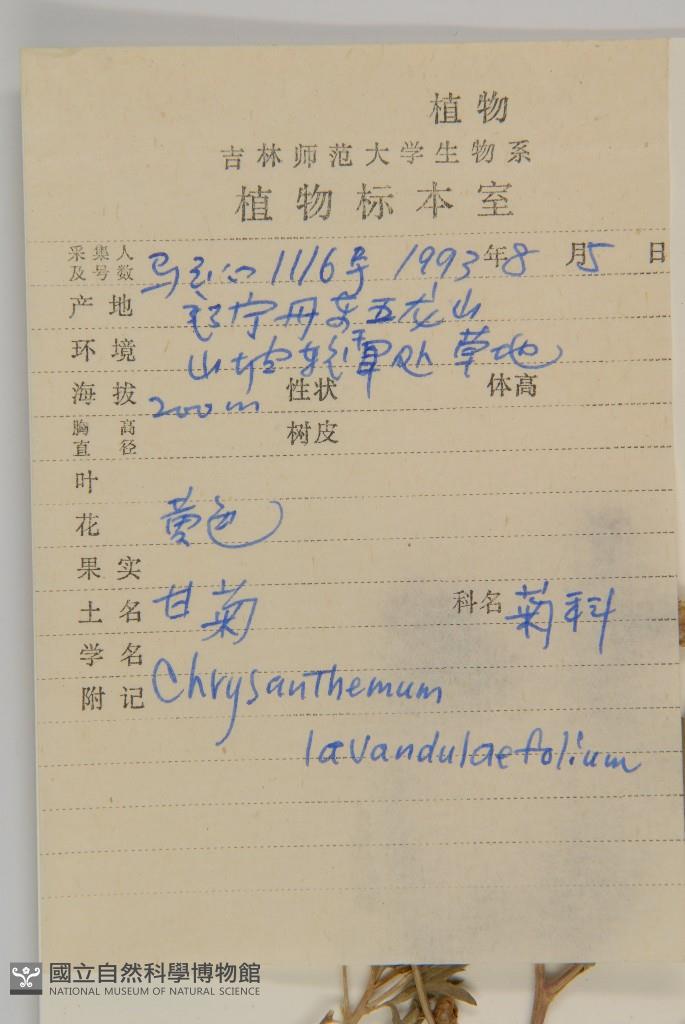 植物
吉林师范大学生物系
植物标本室
采集人及号数 马 1116号 1993年8月5日
产地 辽宁丹东五龙山
环境 山坡 处 草地
海拔 200m 性状 体高
胸高直径 树皮
叶
花 黄色
果实
土名 甘菊 科名 菊科
学名
附记 Chrysanthemum
lavandulaefolium
國立自然科學博物館
NATIONAL MUSEUM OF NATURAL SCIENCE